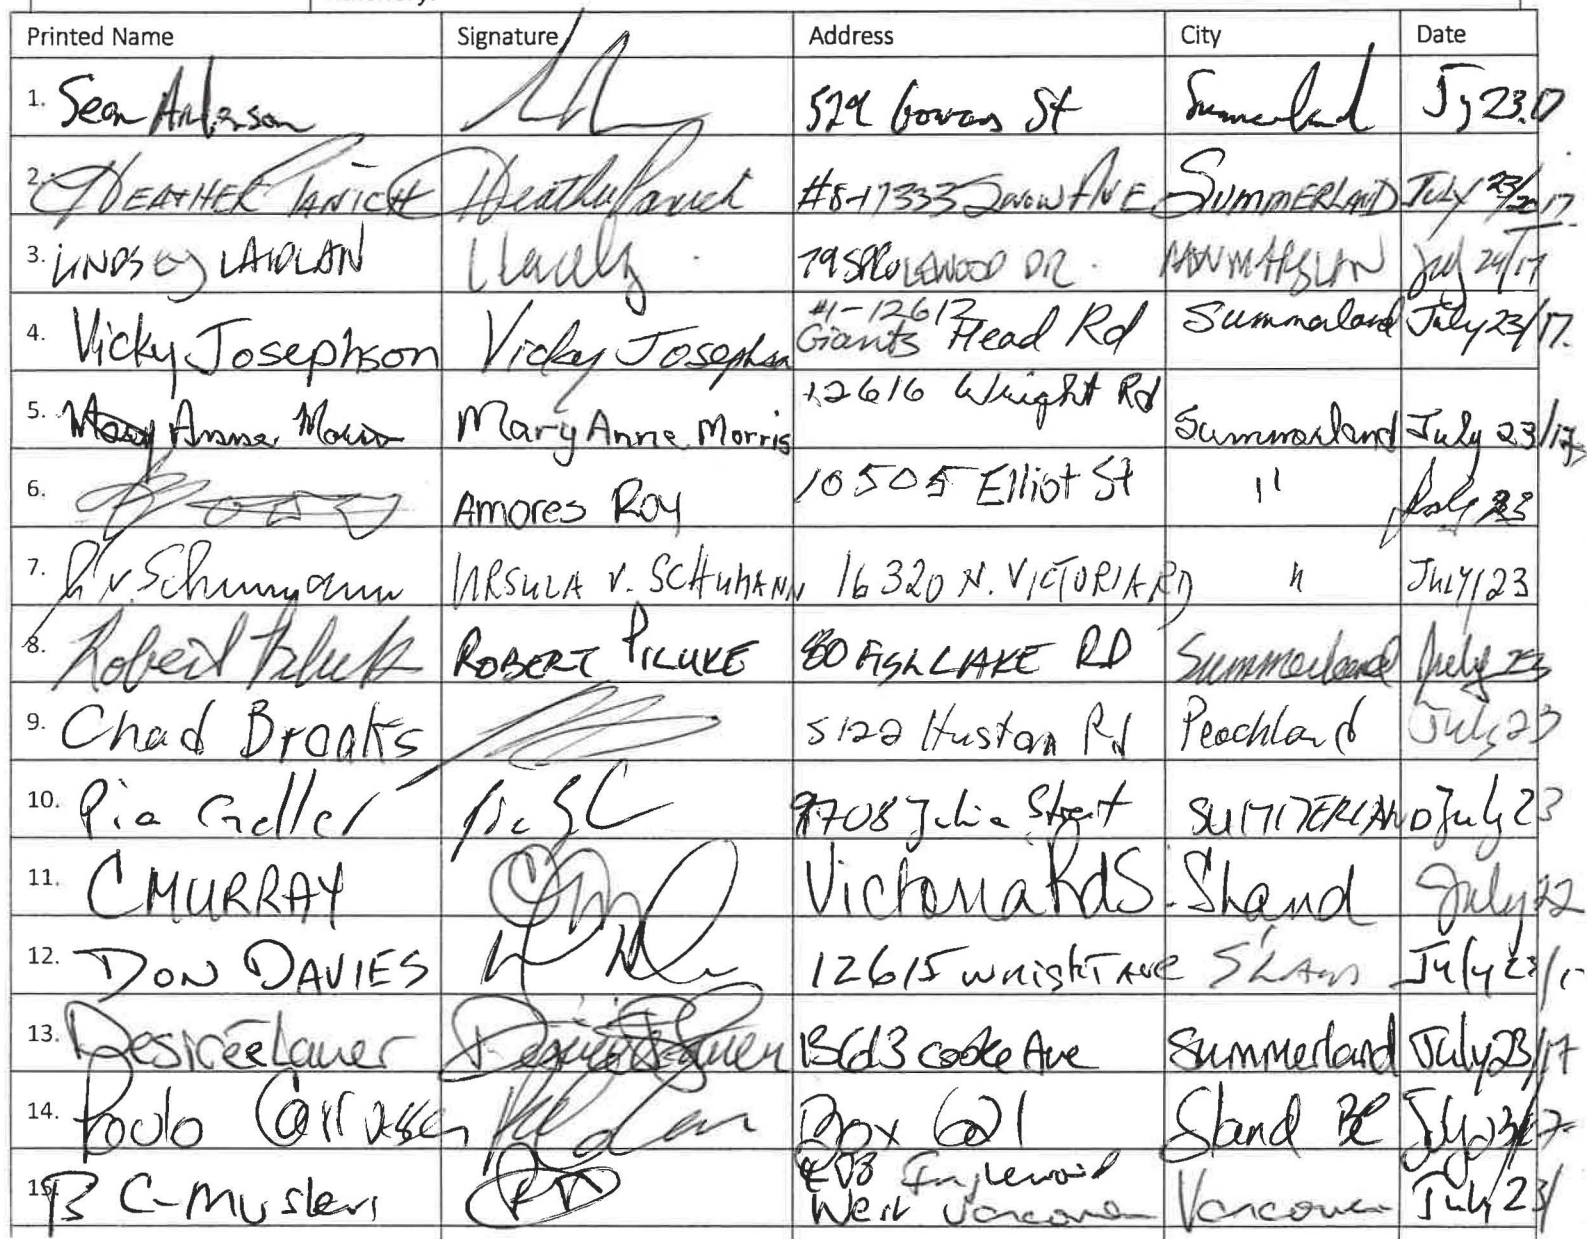 Printed Name Signature Address City Date
1. Sean St Summerland 23.17
2. HEATHER PANICH Heather Panich #8-17333 Snow AVE SUMMERLAND JULY 23/2017
3. LINDSEY LAIDLAW DR. July 24/17
4. Vicky Josephson Vicky Josephson #1-12612 Giants Head Rd Summerland July 23/17.
5. Mary Anne Morris Mary Anne Morris 12616 Wright Rd Summerland July 23/17
6. Amores Roy 10505 Elliot St " July 23
7. v. Schumann URSULA V. SCHUMANN 16320 N. VICTORIA RD " July/23
8. Robert ROBERT 80 FISH LAKE RD Summerland July 23
9. Chad Brooks 5122 Huston Rd Peachland July 23
10. Pia Geller 9708 Julia Street SUMMERLAND July 23
11. C MURRAY Victoria Rd S. S'land July 22
12. DON DAVIES 12615 WRIGHT AVE S'LAND July 23/1
13. Desiree Lauer 13613 Cooke Ave Summerland July 23/17
14. Paulo Box 621 S'land BC July 23/17
15. Englewood
West Vancouver Vancouver July 23/